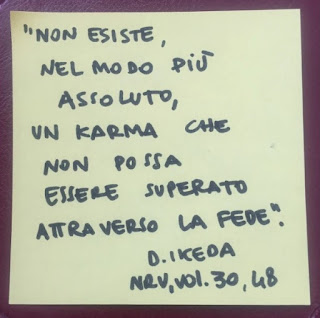 "NON ESISTE,
NEL MODO PIÙ
ASSOLUTO,
UN KARMA CHE
NON POSSA
ESSERE SUPERATO
ATTRAVERSO LA FEDE".
D. IKEDA
NRU, VOL. 30, 48